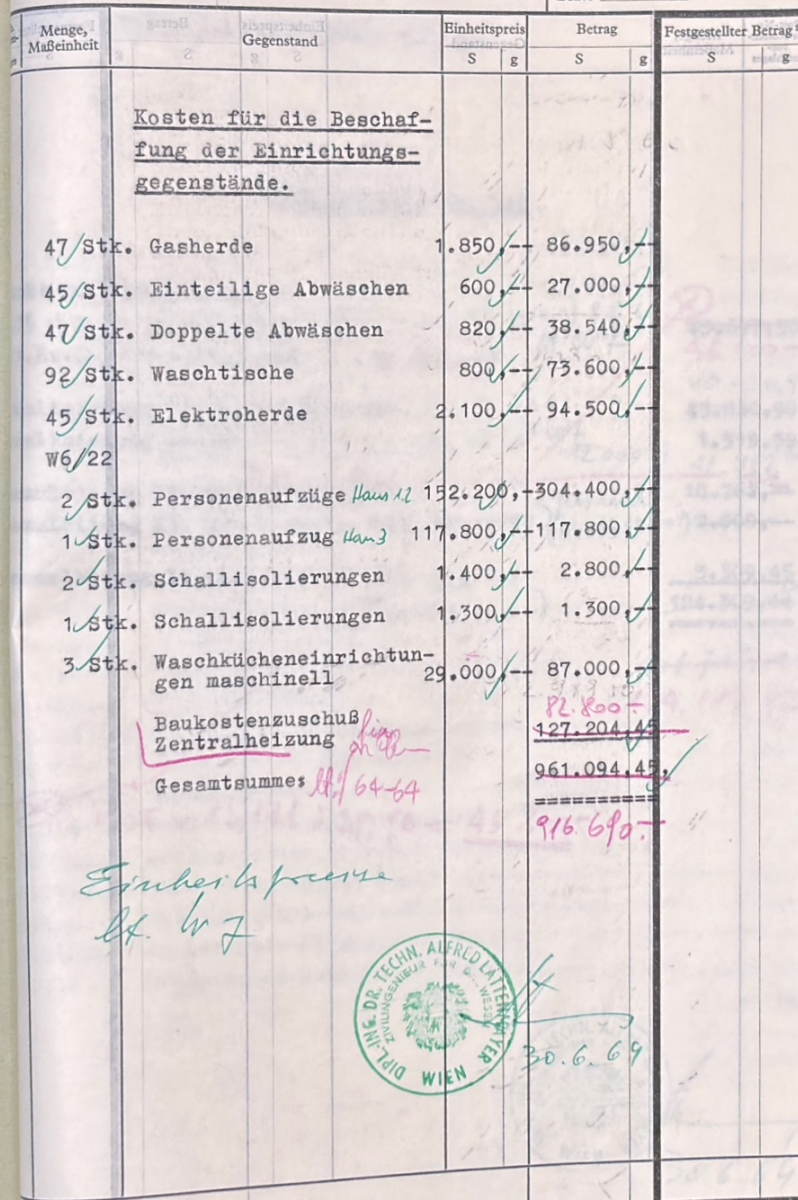 Menge, Maßeinheit Gegenstand Einheitspreis Betrag Festgestellter Betrag
S g S g S g
Kosten für die Beschaf-
fung der Einrichtungs-
gegenstände.
47 Stk. Gasherde 1.850,-- 86.950,--
45 Stk. Einteilige Abwäschen 600,-- 27.000,--
47 Stk. Doppelte Abwäschen 820,-- 38.540,--
92 Stk. Waschtische 800,-- 73.600,--
45 Stk. Elektroherde 2.100,-- 94.500,--
W6/22
2 Stk. Personenaufzüge Haus 1.2 152.200,- 304.400,--
1 Stk. Personenaufzug Haus 3 117.800,-- 117.800,--
2 Stk. Schallisolierungen 1.400,-- 2.800,--
1 Stk. Schallisolierungen 1.300,-- 1.300,--
3 Stk. Waschkücheneinrichtun-
gen maschinell 29.000,-- 87.000,--
82.800.-
Baukostenzuschuß
Zentralheizung 127.204,45
961.094,45,
Gesamtsumme: lt. 64-64
==========
916.690.-
Einheitspreise
lt. W 7
DIPL.-ING. DR. TECHN. ALFRED LATTERMAYER
ZIVILINGENIEUR FÜR BAUWESEN
WIEN
30.6.69